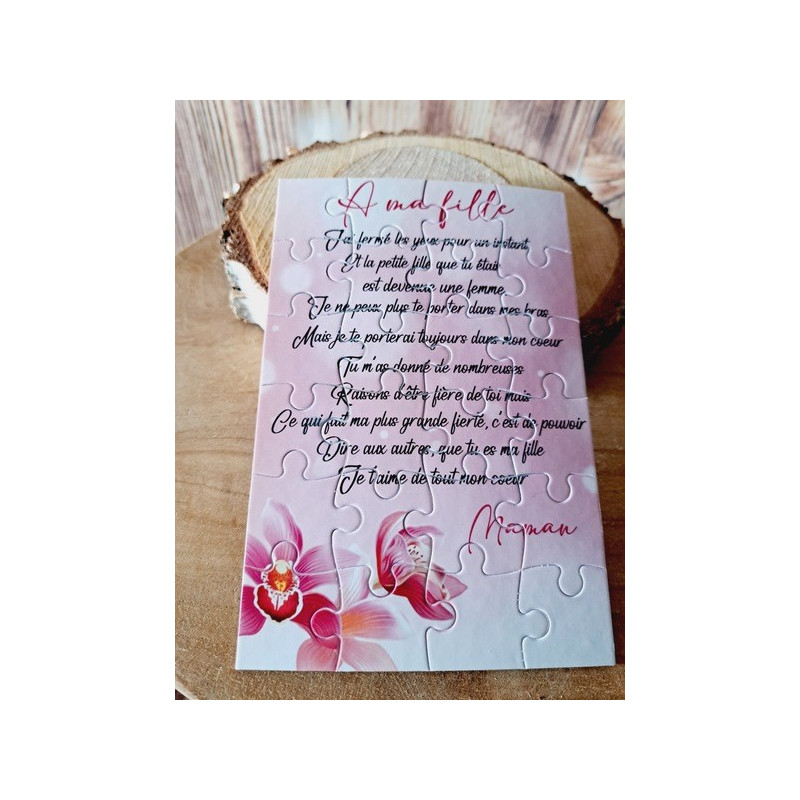 A ma fille
J'ai fermé les yeux pour un instant
Et la petite fille que tu étais
est devenue une femme
Je ne peux plus te porter dans mes bras
Mais je te porterai toujours dans mon coeur
Tu m'as donné de nombreuses
Raisons d'être fière de toi mais
Ce qui fait ma plus grande fierté, c'est de pouvoir
Dire aux autres, que tu es ma fille
Je t'aime de tout mon coeur
Maman